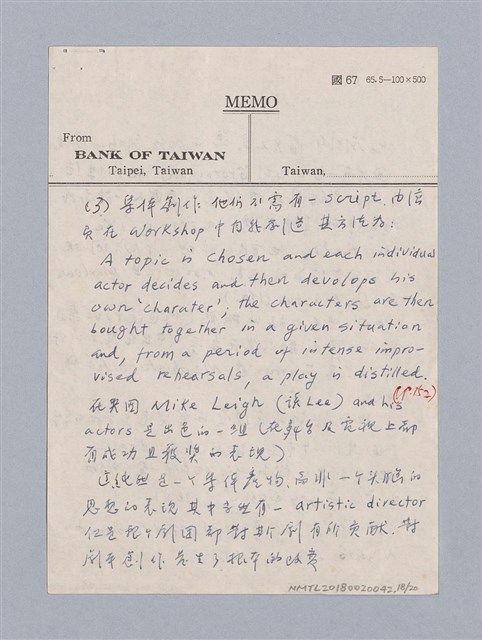 國 67 65.5—100×500
MEMO
From
BANK OF TAIWAN
Taipei, Taiwan
Taiwan,
(3) 集体創作: 他們不需有一 script, 由信
在 workshop 中 創造 其方法為:
A topic is chosen and each individual
actor decides and then devolops his
own 'charater'; the characters are then
bought together in a given situation
and, from a period of intense impro-
vised rehearsals, a play is distilled.
(P.152)
在英国 Mike Leigh (讀Lee) and his
actors 是出色的一組 (在舞台及電視上都
有成功且獲奬的表現)
這純粹是一个集体產物, 而非一个头腦的
思想的表現 其中也許有一 artistic director
但是整个劇団都對斯劇有所貢献. 對
劇本創作 產生了根本的改變
NMTL20180020042, 18/20